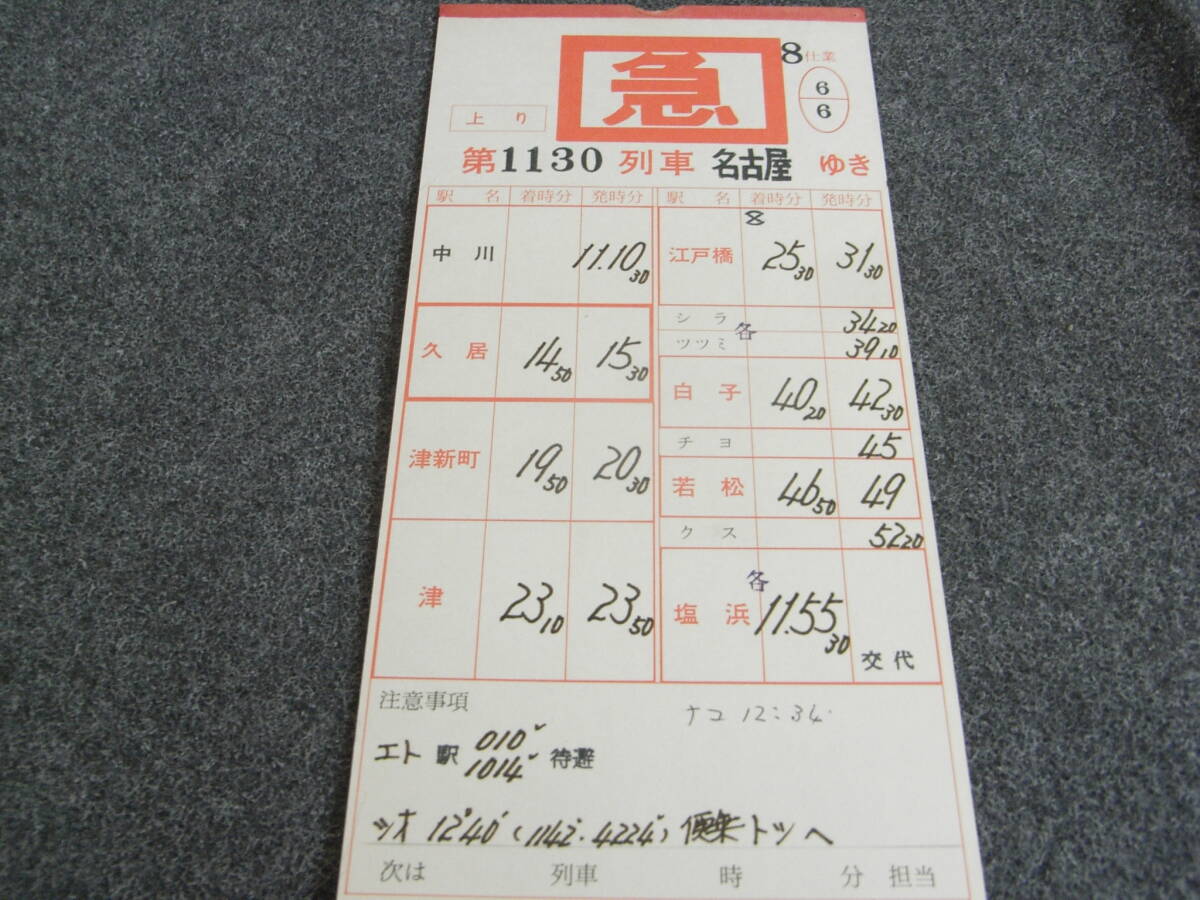 急
8仕業
6
6
上り
第1130列車 名古屋 ゆき
駅名 着時分 発時分
中川 11.10 30
久居 14 50 15 30
津新町 19 50 20 30
津 23 10 23 50
駅名 着時分 発時分
8
江戸橋 25 30 31 30
シラ 34 20
各
ツツミ 39 10
白子 40 20 42 30
チヨ 45
若松 46 50 49
クス 52 20
各
塩浜 11.55 30 交代
注意事項
ナコ 12:34
エト駅 010 1014 待避
ツオ 12°40′ (1142. 4224) 便乗トツヘ
次は 列車 時 分 担当